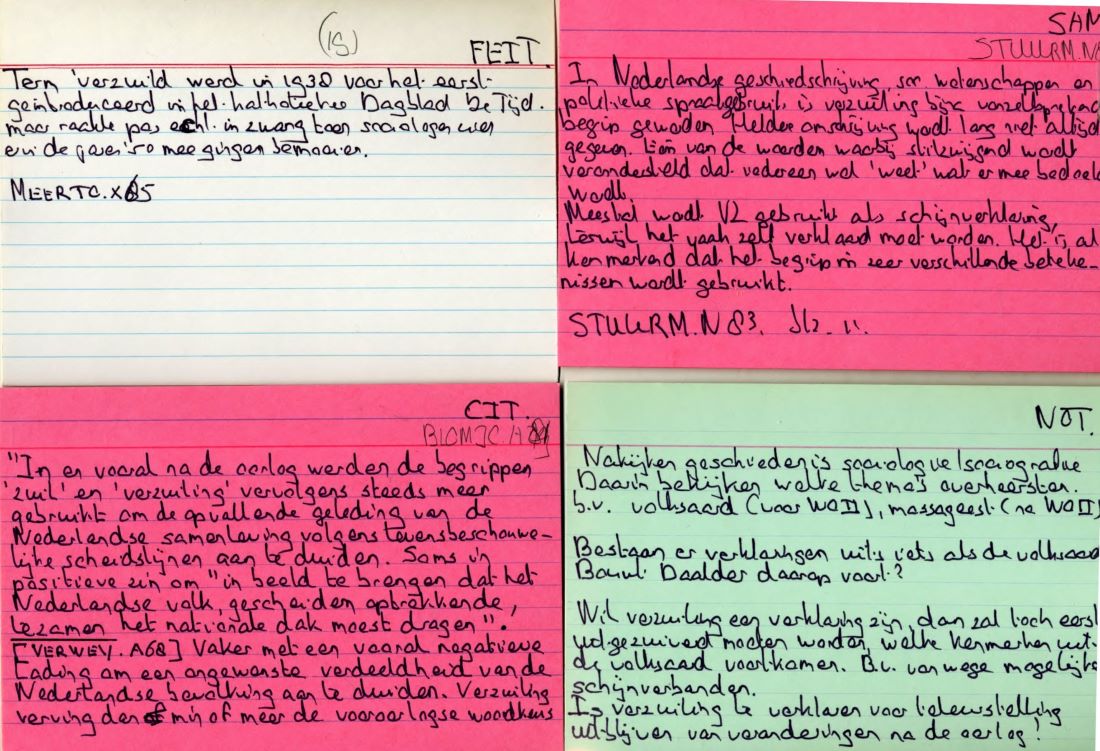 (15)
FEIT.
Term 'verzuild werd in 1938 voor het eerst
geintroduceerd in het katholieke Dagblad De Tijd.
maar raakte pas echt in zwang toen sociologen
in de jaren '50 mee gingen bemoeien.
MEERTC.X65
SAM
STUURM.N8
In Nederlandse geschiedschrijving, soc wetenschappen en
politieke spraakgebruik is verzuiling bijna vanzelfsprekend
begrip geworden Helder omschrijving wordt lang niet altijd
gegeven. Eén van de woorden waarbij stilzwijgend wordt
verondersteld dat iedereen wel 'weet' wat er mee bedoeld
wordt.
Meestal wordt VZ gebruikt als schijnverklaring,
terwijl het vaak zelf verklaard moet worden. Het is al
kenmerkend dat het begrip in zeer verschillende beteke-
nissen wordt gebruikt.
STUURM.N 83. blz. 11.
CIT.
BLOMJC.A
"In en vooral na de oorlog werden de begrippen
'zuil' en 'verzuiling' vervolgens steeds meer
gebruikt om de opvallende geleding van de
Nederlandse samenleving volgens levensbeschouwe-
lijke scheidslijnen aan te duiden. Soms in
positieve zin om "in beeld te brengen dat het
Nederlandse volk, gescheiden optrekkende,
tezamen het nationale dak moest dragen".
[VERWEY. A68] Vaker met een vooral negatieve
lading om een ongewenste verdeeldheid van de
Nederlandse bevolking aan te duiden. Verzuiling
verving dan min of meer de vooroorlogse woordkeus
NOT.
Nakijken geschiedenis sociologie/sociografie
Daarin bekijken welke thema's overheersten.
b.v. volksaard (voor WO II), massageest (na WO II)
Bestaan er verklaringen uit iets als de volksaard
Bouwt Daalder daarop voort?
Wil verzuiling een verklaring zijn, dan zal toch eerst
uitgezuiverd moeten worden, welke kenmerken uit
de volksaard voortkomen. B.v. vanwege mogelijke
schijnverbanden.
Is verzuiling te verklaren voor teleurstelling
uitblijven van veranderingen na de oorlog?